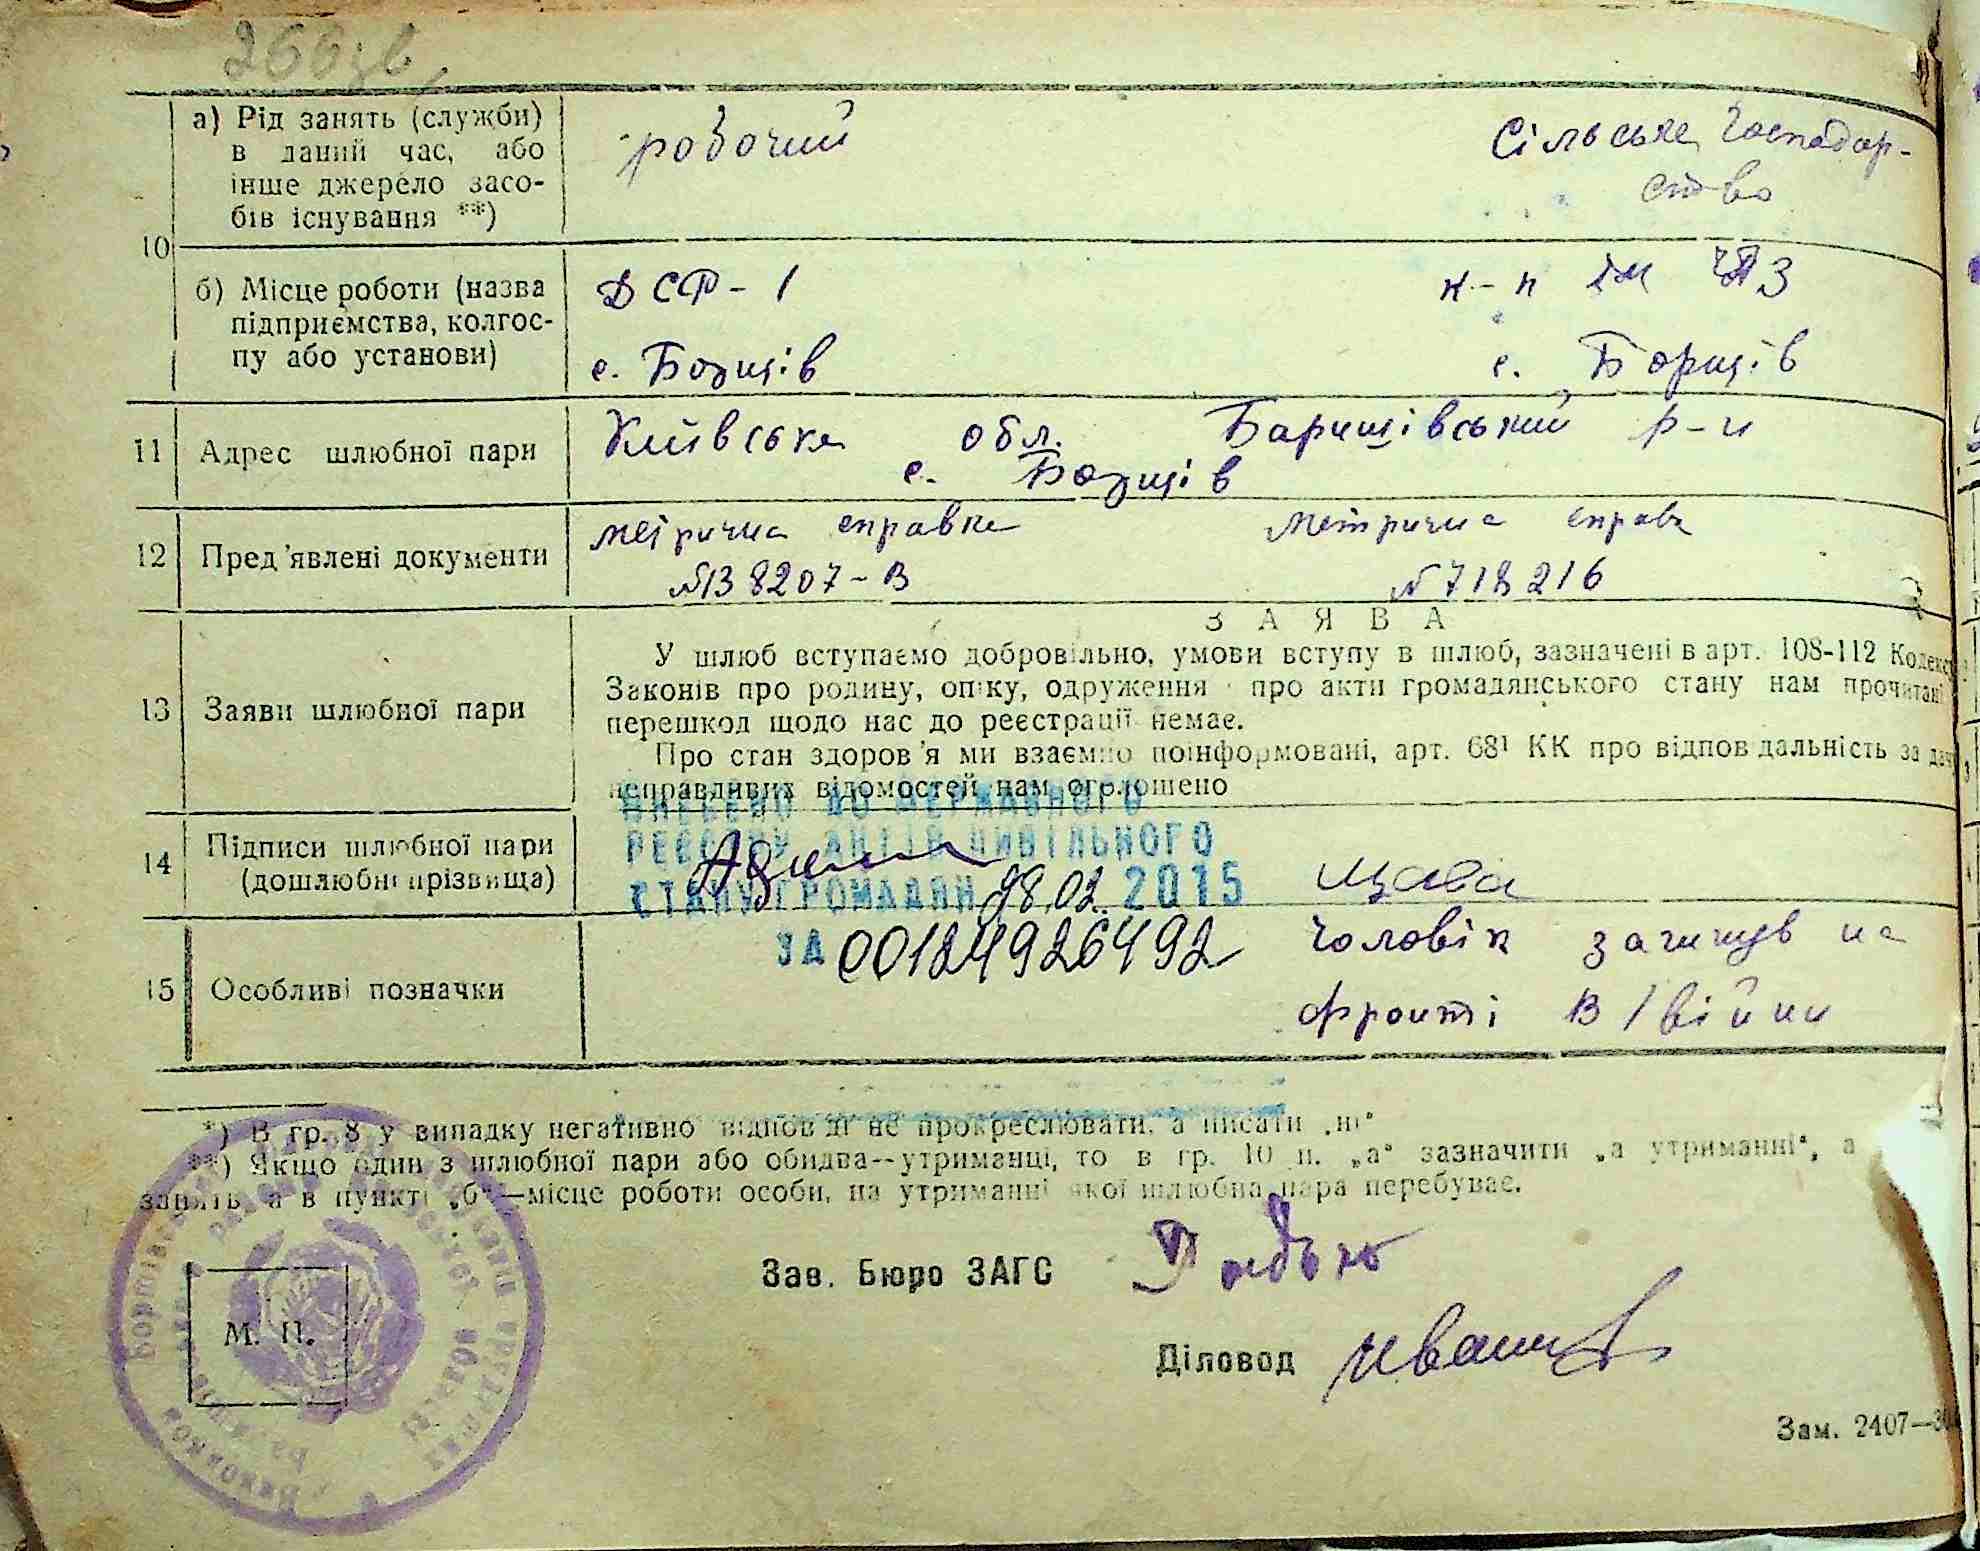 266 зв
10
а) Рід занять (служби)
в даний час, або
інше джерело засо-
бів існування **)
робочий
Сільське Господар-
ство
б) Місце роботи (назва
підприємства, колгос-
пу або установи)
ДСР-1
с. Борщів
к-п ім ЧПЗ
с. Борщів
11 Адрес шлюбної пари
Київська обл. Баришівський р-н
с. Борщів
12 Пред'явлені документи
метрична справка
№138207-В
Метрична справк
№718216
13 Заяви шлюбної пари
ЗАЯВА
У шлюб вступаємо добровільно, умови вступу в шлюб, зазначені в арт. 108-112 Кодекс
Законів про родину, опіку, одруження про акти громадянського стану нам прочитані
перешкод щодо нас до реєстрації немає.
Про стан здоров'я ми взаємно поінформовані, арт. 68¹ КК про відповідальність за дач
неправдивих відомостей нам оголошено
ВНЕСЕНО ДО ДЕРЖАВНОГО
РЕЄСТРУ АКТІВ ЦИВІЛЬНОГО
СТАНУ ГРОМАДЯН 28.02.2015
ЗА 00124926492
14 Підписи шлюбної пари
(дошлюбні прізвища)
15 Особливі позначки
Чоловік загинув на
фронті В/війни
*) В гр. 8 у випадку негативно відпов ді не прокреслювати, а писати „ні"
**) Якщо один з шлюбної пари або обидва—утриманці, то в гр. 10 п. „а" зазначити „а утриманні", а
занять, а в пункті „б"—місце роботи особи, на утриманні якої шлюбна пара перебуває.
Зав. Бюро ЗАГС
М. П.
Діловод
Зам. 2407—30